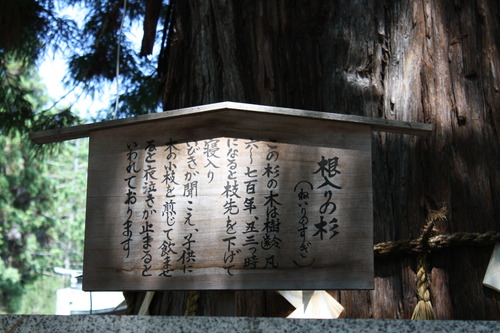 根入りの杉
（ねいりのすぎ）
この杉の木は樹齢凡
六〜七百年、丑三時
になると枝先を下げて
寝入り
いびきが聞こえ、子供に
木の小枝を煎じて飲ませ
ると夜泣きが止まると
いわれております